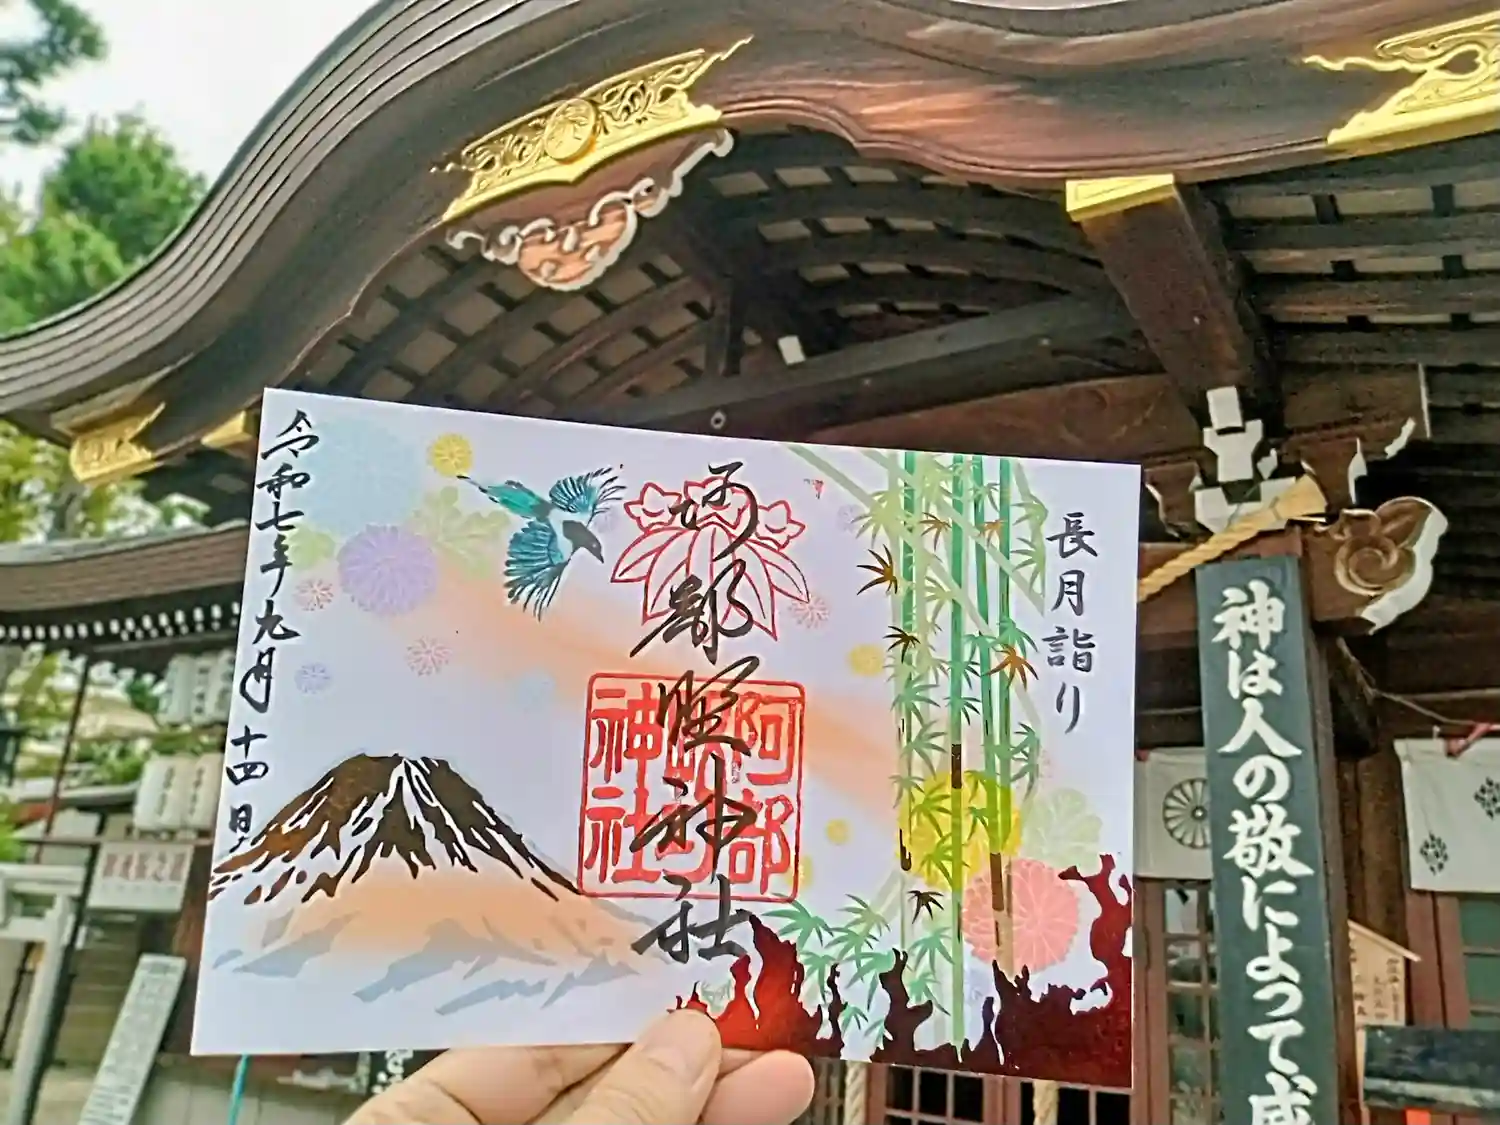 長月詣り
阿部野神社
阿部
野
神社
令和七年九月十四日
神は人の敬によって威